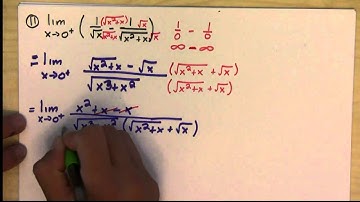 ⑪ lim x→0⁺ ( 1(√x²+x) / √x (√x²+x) − 1 √x / √x²+x √x ) 1/0 − 1/0
∞ − ∞
= lim x→0⁺ (√x²+x − √x) / √x³+x² (√x²+x + √x) / (√x²+x + √x)
= lim x→0⁺ (x² + x − x) / √x³+x² (√x²+x + √x)